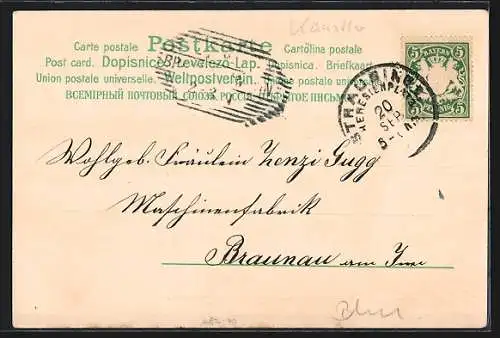 Künstler
Carte postale Postkarte Cartolina postale
Post card. Dopisnice. Levelező-Lap. Dopisnica. Briefkaart.
Union postale universelle. Weltpostverein. Union postale universelle.
ВСЕМІРНЫЙ ПОЧТОВЫЙ СОЮЗ. РОССІЯ. ОТКРЫТОЕ ПИСЬМО.
5 BAYERN 5
5 5
STRAUBING
THERESIENPLATZ
20
SEP
Wohlgeb. Fräulein Zenzi Gugg
Maschinenfabrik
Braunau am Inn